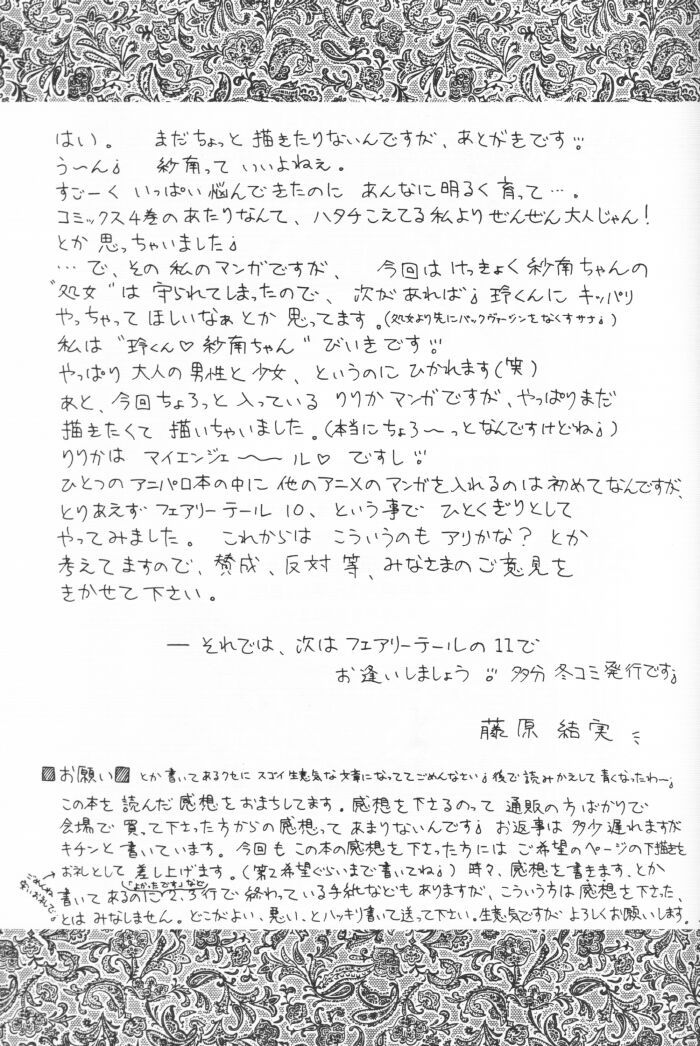 はい。 まだちょっと描きたりないんですが、あとがきです!!
う〜ん♩ 紗南っていいよねぇ。
すごーく いっぱい悩んできたのに あんなに明るく育って…。
コミックス4巻のあたりなんて、ハタチこえてる私よりぜんぜん大人じゃん!
とか思っちゃいました♩
あと、今回ちょろっと入っている りりかマンガですが、やっぱりまだ
描きたくて 描いちゃいました。(本当にちょろ〜っとなんですけどね♩)
りりかは マイエンジェ〜〜ル♡ ですし!!
ひとつのアニパロ本の中に 他のアニメのマンガを入れるのは初めてなんですが、
とりあえず フェアリーテール10、という事で ひとくぎりとして
やってみました。 これからは こういうのもアリかな? とか
考えてますので、賛成、反対 等、みなさまのご意見を
きかせて下さい。
— それでは、次は フェアリーテールの11で
お逢いしましょう!! 多分 冬コミ発行です♩
藤原 結実
お願い とか書いてあるクセに スゴイ生意気な文章になっててごめんなさい♩後で読みかえして青くなったわ〜♩
この本を読んだ感想をおまちしてます。感想を下さるのって 通販の方ばかりで
会場で買って下さった方からの感想って あまりないんです♩ お返事は多少遅れますが
キチンと書いています。今回もこの本の感想を下さった方には ご希望のページの下描きを
お礼として差し上げます。(第2希望ぐらいまで書いてね♩) 時々、感想を書きます、とか
書いてあるのに「よかったです」など 2、3行で終わっている手紙などもありますが、こういう方は感想を下さった、
とはみなしません。どこがよい、悪い、とハッキリ書いて送って下さい。生意気ですが よろしくお願いします。